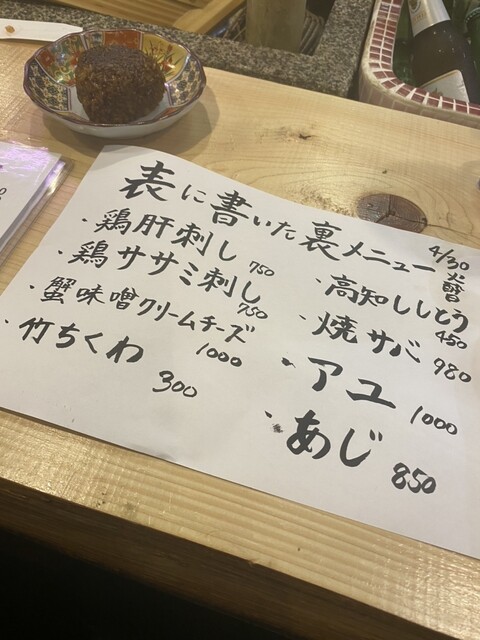 表に書いた裏メニュー
4/30
・鶏肝刺し 750
・鶏ササミ刺し 750
・蟹味噌クリームチーズ 1000
・竹ちくわ 300
・高知ししとう 450
・焼サバ 980
・アユ 1000
・あじ 850